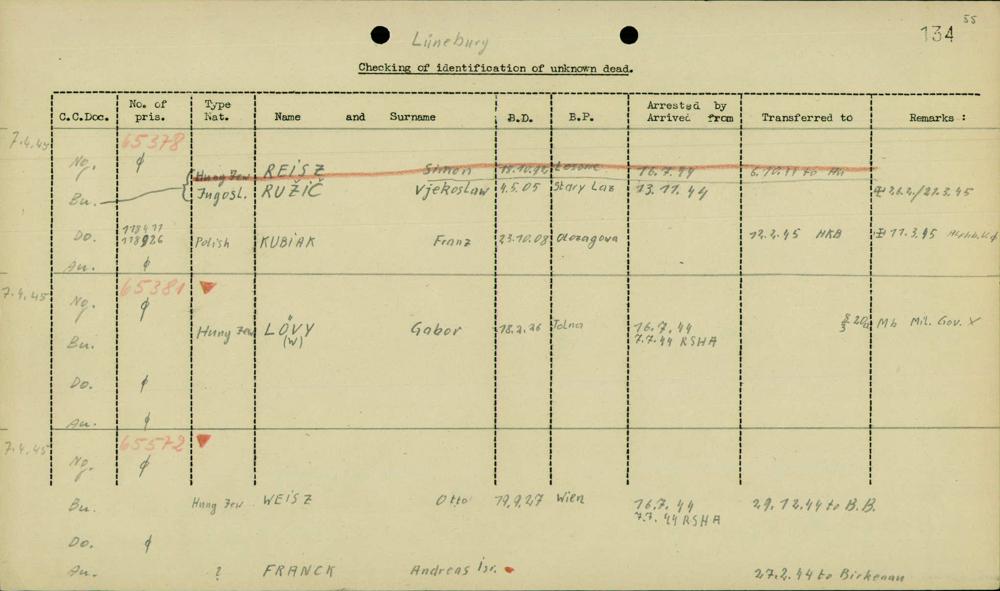 55
Lüneburg 134
Checking of identification of unknown dead.
C.C.Doc. No. of pris. Type Nat. Name and Surname B.D. B.P. Arrested by Arrived from Transferred to Remarks :
7.4.45 65378
Ng. ϕ Hung Jew REISZ Simon 18.10.92 Losonc 16.7.44 6.10.44 to
Bu. Jugosl. RUŽIČ Vjekoslaw 4.5.05 Stary Las 13.11.44 26.2./27.3.45
118411
Do. 118926 Polish KUBIAK Franz 23.10.08 Olozagowa 12.2.45 HKB 11.3.45
Au. ϕ
7.4.45 65381
Ng. ϕ
Hung Jew LÖVY Gabor 18.2.26 Tolna 16.7.44 Mb Mil. Gov. X
Bu. (W) 7.7.44 RSHA
Do. ϕ
Au. ϕ
7.4.45 65572
Ng. ϕ
Bu. Hung Jew WEISZ Otto 19.9.27 Wien 16.7.44 29.12.44 to B.B.
7.7.44 RSHA
Do. ϕ
Au. ? FRANCK Andreas Isr. 27.2.44 to Birkenau